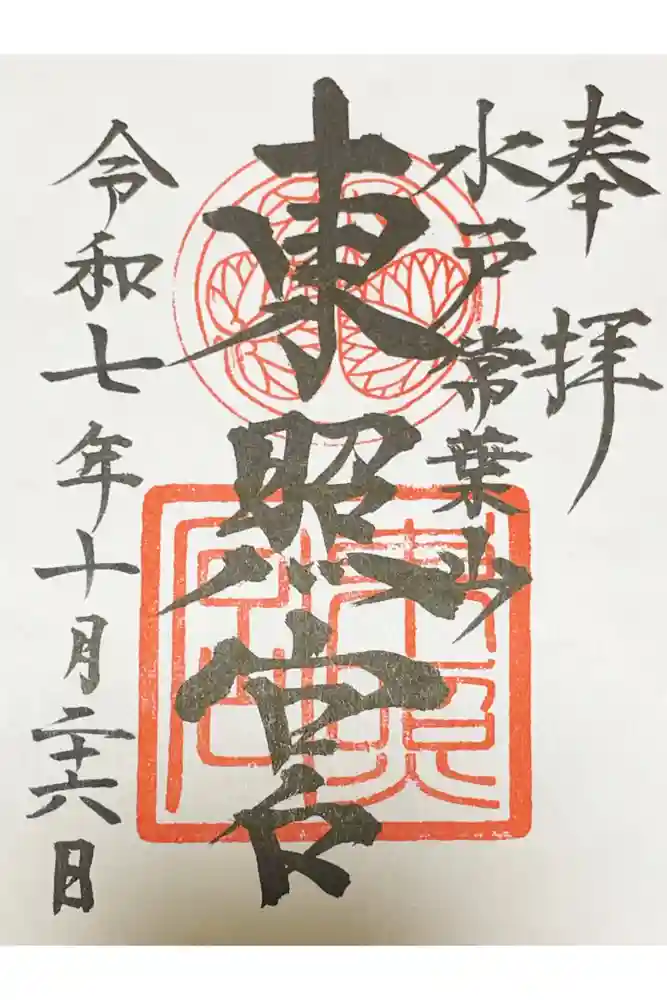 奉拝
水戸常葉山
東照宮
令和七年十月二十六日